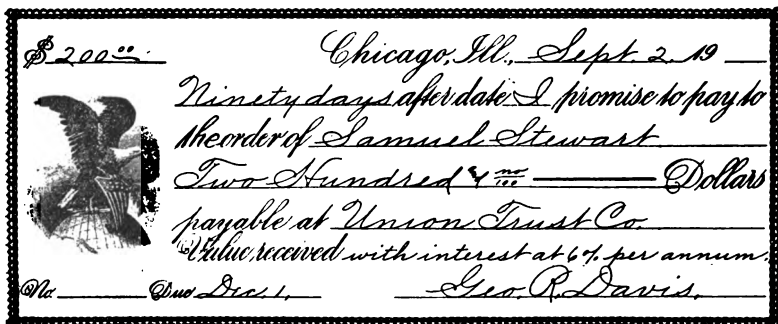 $ 200 00/100. Chicago, Ill., Sept. 2, 19
Ninety days after date I promise to pay to
the order of Samuel Stewart
Two Hundred & no/100 Dollars
payable at Union Trust Co.
Value received with interest at 6% per annum.
No. Due Dec. 1. Geo. R. Davis.